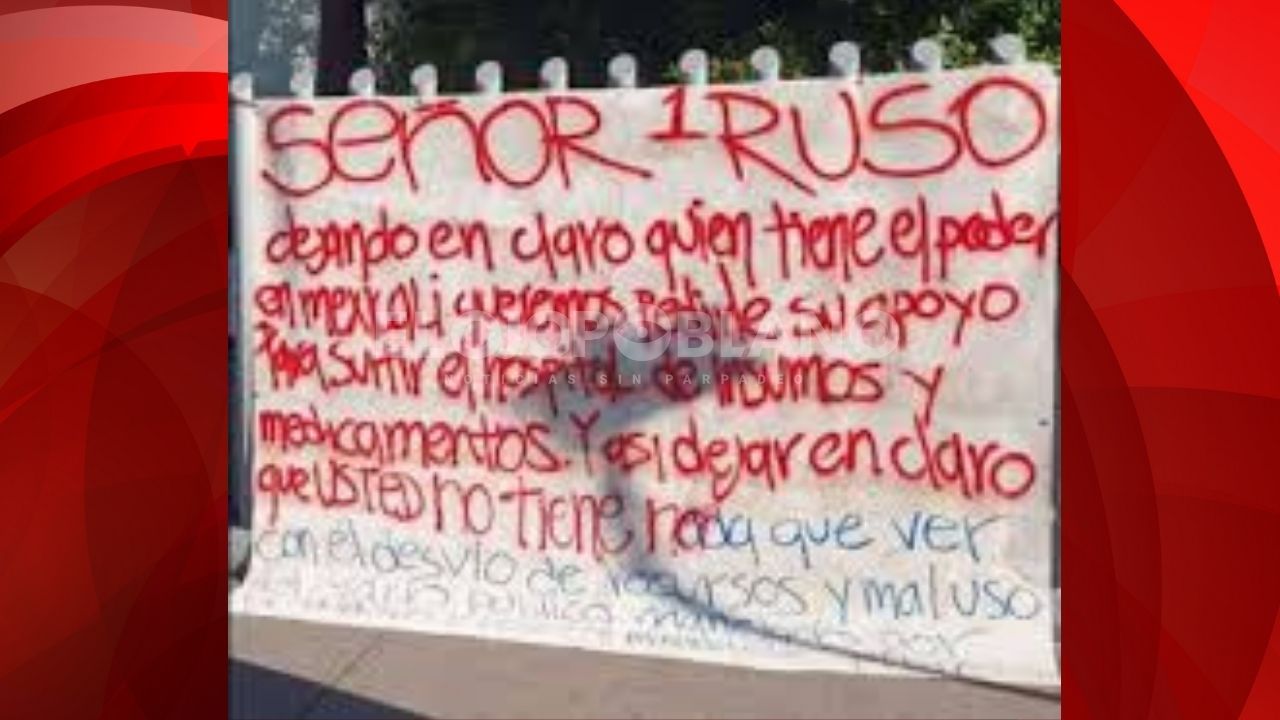 SEÑOR 1 RUSO
dejando en claro quien tiene el poder
en mexicali queremos pedirle su apoyo
Para surtir el hospital de insumos y
medicamentos. Y asi dejar en claro
que USTED no tiene nada que ver
con el desvio de recursos y mal uso
POBLANO
NOTICIAS SIN PARPADEO